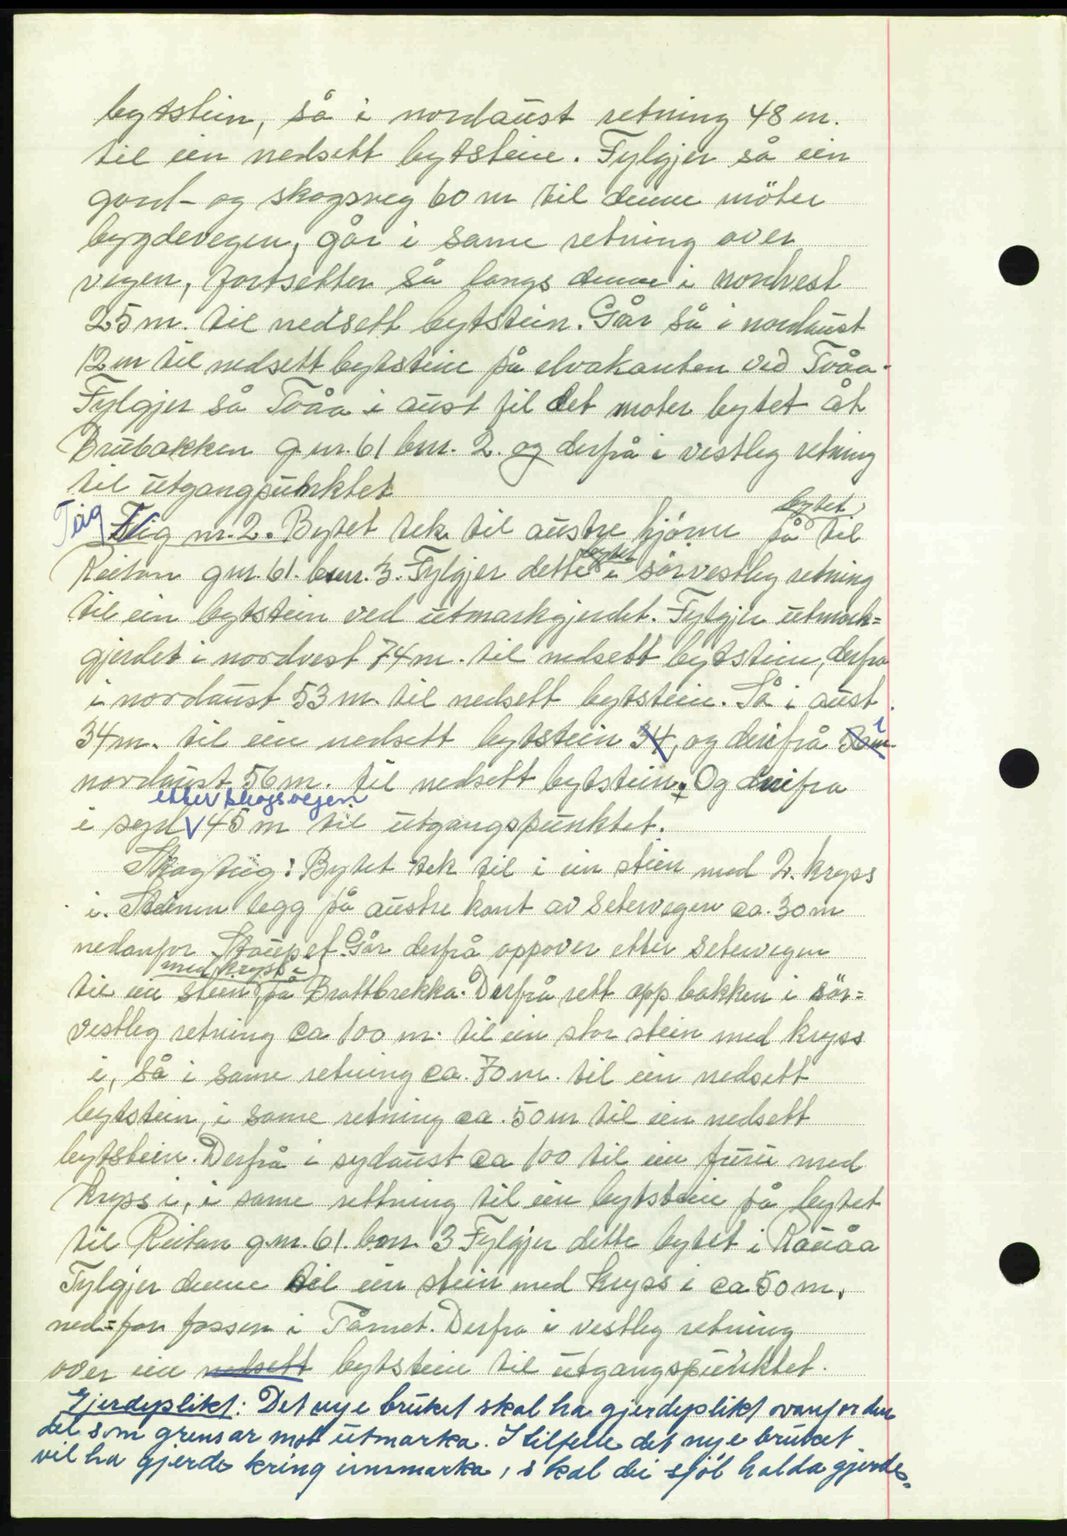 bytstein, så i nordaust retning 48 m.
til ein nedsett bytstein. Fylgjer så ein
gard- og skogsveg 60 m til denne möter
bygdevegen, går i same retning over
vegen, fortsetter så langs denne i nordvest
25 m. til nedsett bytstein. Går så i nordaust
12 m til nedsett bytstein på elvakanten ved Tvåa.
Fylgjer så Tvåa i aust til det möter bytet åt
Brubakken g nr. 61 bnr. 2. og derfrå i vestleg retning
til utgangpunktet
Teig nr. 2. Bytet tek til austre hjörne på bytet til
Reitan gnr. 61. bnr. 3. Fylgjer dette bytet i sörvestleg retning
til ein bytstein ved utmarkgjerdet. Fylgjer utmark=
gjerdet i nordvest 74 m. til nedsett bytstein, derfra
i nordaust 53 m til nedsett bytstein. Så i aust
34 m. til ein nedsett bytstein 34, og derifrå i
nordaust 56 m. til nedsett bytstein. Og derifra
i syd etter skogsvegen 45 m til utgangspunktet.
Skogteig: Bytet tek til i ein stein med 2. kryss
i. Steinen legg på austre kant av setervegen ca. 30 m
nedanfor Staupet. Går derfrå oppover etter setervegen
til ein stein med kryss i på Brattbrekka. Derfrå rett opp bakken i sör=
vestleg retning ca 100 m. til ein stor stein med kryss
i, så i same retning ca. 70 m. til ein nedsett
bytstein, i same retning ca. 50 m til ein nedsett
bytstein. Derfrå i sydaust ca 100 til ein furu med
kryss i, i same rettning til ein bytstein på bytet
til Reitan g.nr. 61. bnr. 3 Fylgjer dette bytet i Rauåa
Fylgjer denne til ein stein med kryss i ca 50 m.
ned=for fossen i Tårnet. Derfra i vestleg retning
over ein nedsett bytstein til utgangspunktet.
Gjerdeplikt: Det nye bruket skal ha gjerdeplikt ovanfor den
del som grensar mot utmarka. I tilfelle det nye bruket
vil ha gjerde kring innmarka, skal dei sjöl halda gjerde=